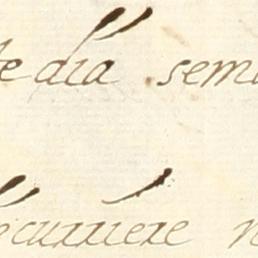 de dia sem
ecurriere